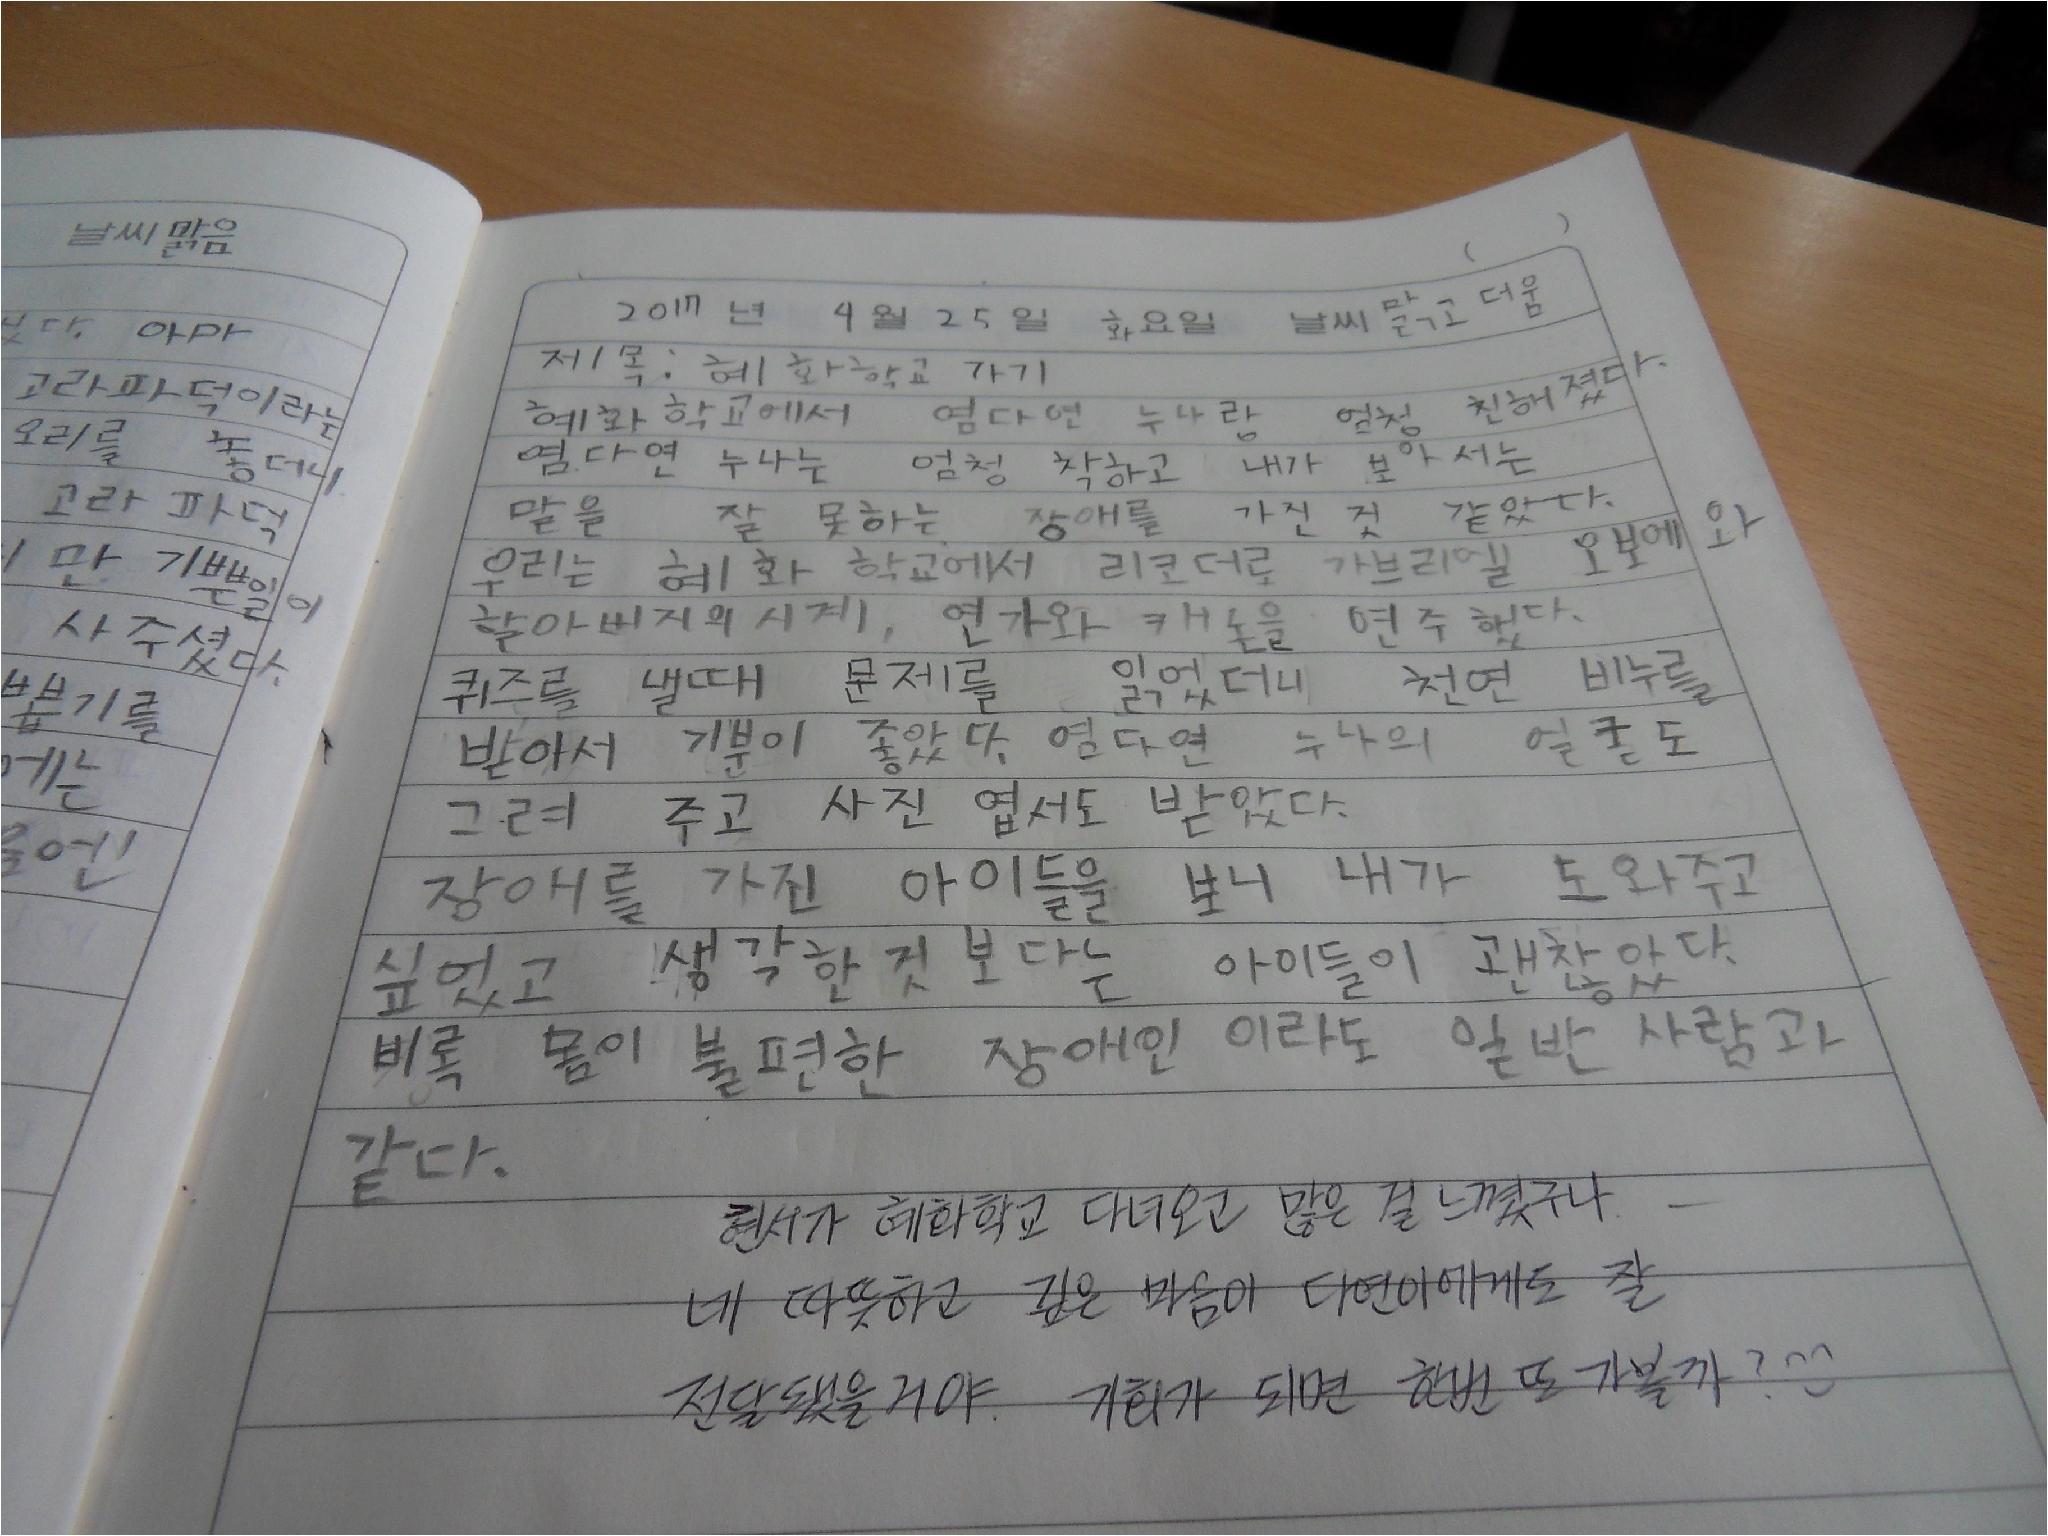 날씨 맑음
아마
고라파덕이라는
오리를 놓더니
고라파덕
만 기쁜일이
사주셨다.
뽑기를
에는
2017년 4월 25일 화요일 날씨 맑고 더움
제목: 혜화학교 가기
혜화학교에서 염다연 누나랑 엄청 친해졌다.
염다연 누나는 엄청 착하고 내가 보아서는
말을 잘 못하는 장애를 가진 것 같았다.
우리는 혜화 학교에서 리코더로 가브리엘 오보에와
할아버지의 시계, 연가와 캐논을 연주했다.
퀴즈를 낼때 문제를 읽었더니 천연 비누를
받아서 기분이 좋았다. 염다연 누나의 얼굴도
그려 주고 사진 엽서도 받았다.
장애를 가진 아이들을 보니 내가 도와주고
싶었고 생각한것 보다는 아이들이 괜찮았다.
비록 몸이 불편한 장애인 이라도 일반 사람과
같다.
현서가 혜화학교 다녀오고 많은 걸 느꼈구나.
네 따뜻하고 깊은 마음이 다연이에게도 잘
전달됐을거야. 기회가 되면 한번 또 가볼까?